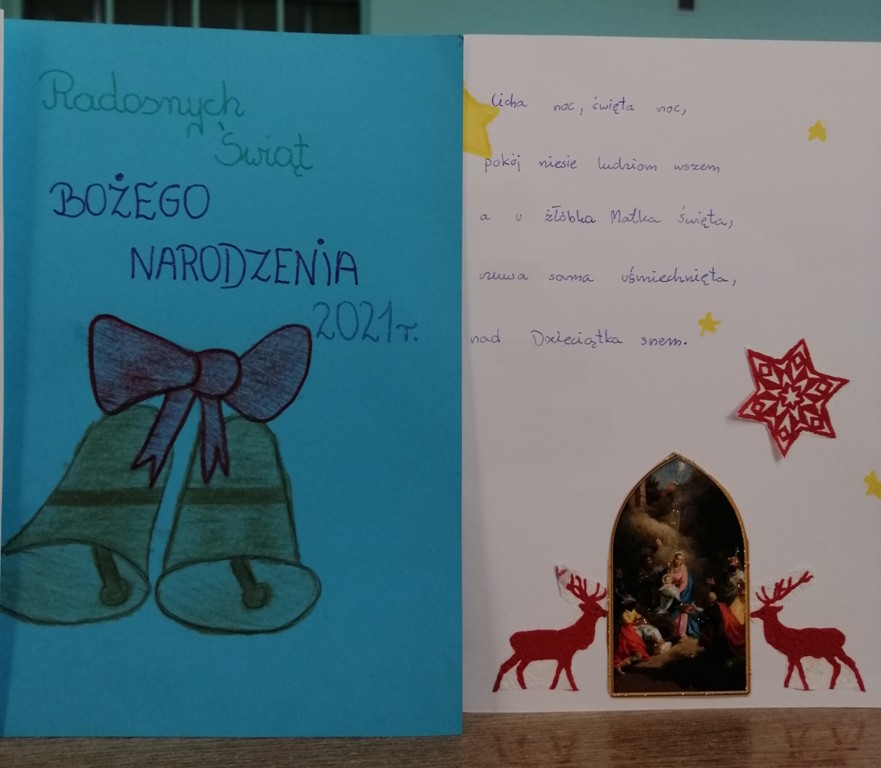 Radosnych
Świąt
BOŻEGO
NARODZENIA
2021r.
Cicha noc, święta noc,
pokój niesie ludziom wszem
a u żłóbka Matka święta,
czuwa sama uśmiechnięta,
nad Dzieciątka snem.